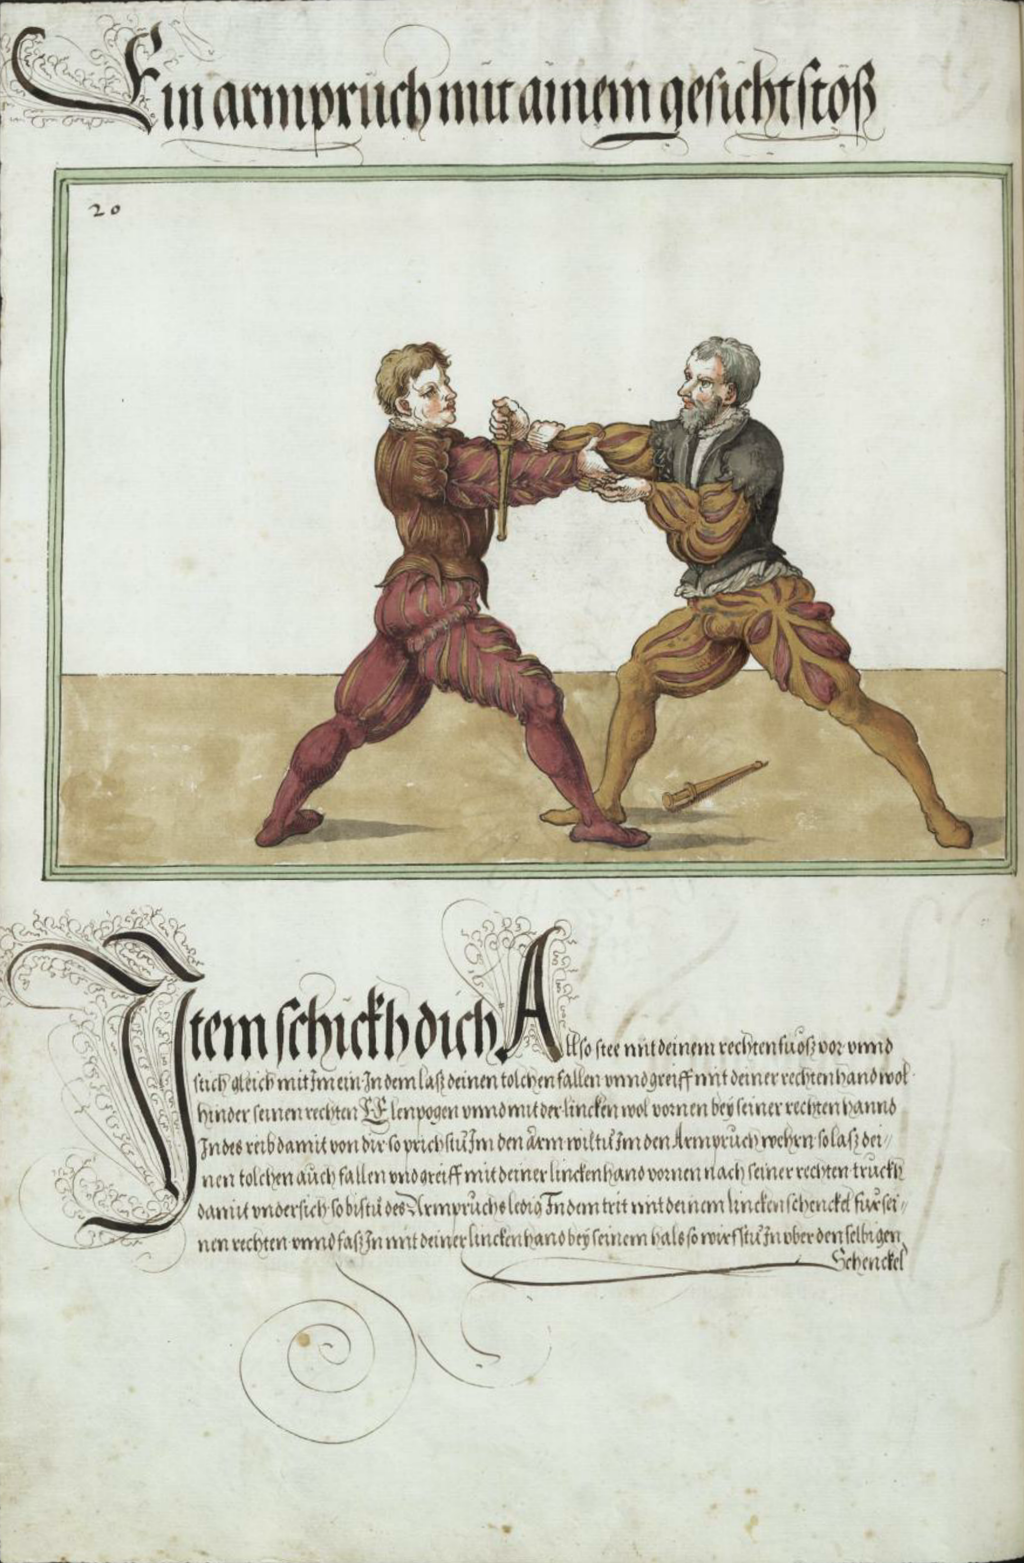 Ein armpruch mit ainem gesicht stöß
20
Item schickh dich Allso stee mit deinem rechten fuoß vor vnnd
stich gleich mit Im ein In dem laß deinen tolchen fallen vnnd greiff mit deiner rechten hand wol
hinder seinen rechten Elenpogen vnnd mit der lincken wol vornen bey seiner rechten hannd
Indes reib damit von dir so prichstu Im den arm wiltu Im den Armpruch wehrn so laß dei//
nen tolchen auch fallen vnd greiff mit deiner lincken hand vornen nach seiner rechten truckh
damit vndersich so bistu des Armpruchs ledig In dem trit mit deinem lincken schenckel für sei//
nen rechten vnnd faß In mit deiner lincken hand bey seinem hals so wirfstu In vber den selbigen
Schenckel